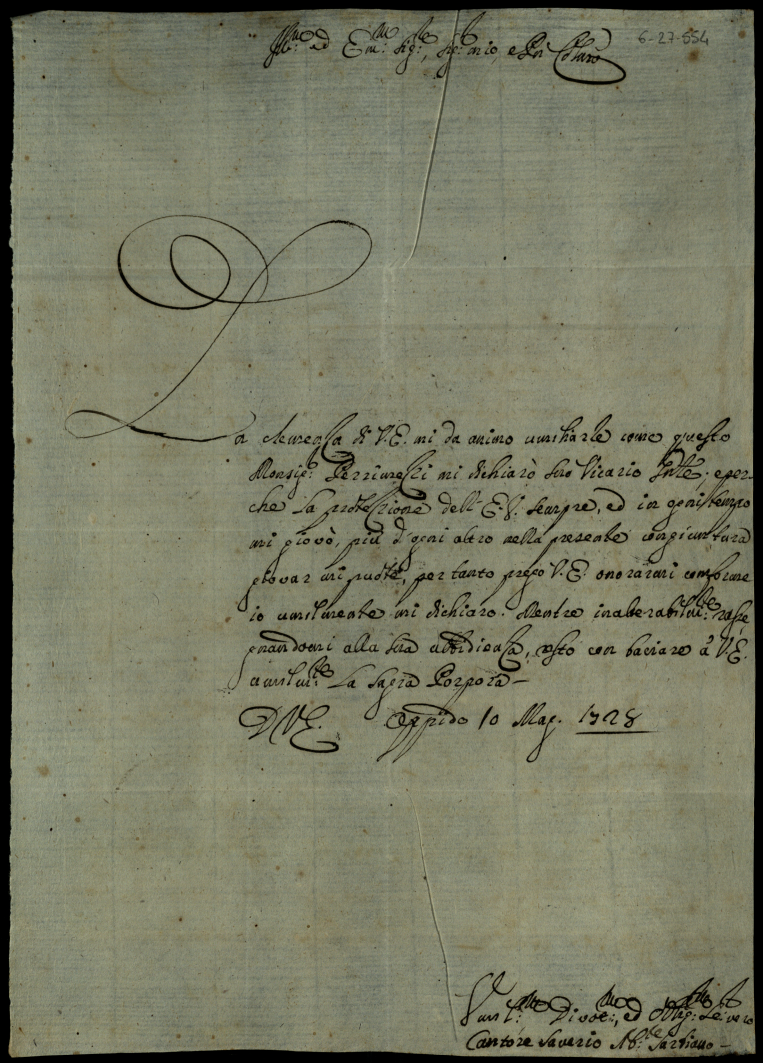 6-27-554
Ill.mo ed Em.mo Sig.re, Sig.re mio, e Pn Col.mo
La clemenza di V.E. mi da animo umiliarle come questo
Monsig.r Perrimezzi mi dichiarò suo Vicario Gnle; e per-
che la protezzione dell' E.V. sempre, ed in ogni tempo
mi giovò, più d'ogni altro nella presente congiuntura
giovar mi puote, per tanto prego V.E. onorarmi conforme
io umilmente mi dichiaro. Mentre inalterabilm.te rasse
gnandomi alla sua ubbidienza, resto con baciare à V.E.
umilm.te la Sagra Porpora –
D.V.E. Oppido 10 Mag. 1728
Umil.mo Divot.mo, ed Obblig.mo Se: vero
Cantore Saverio Ab.te Sartiano –